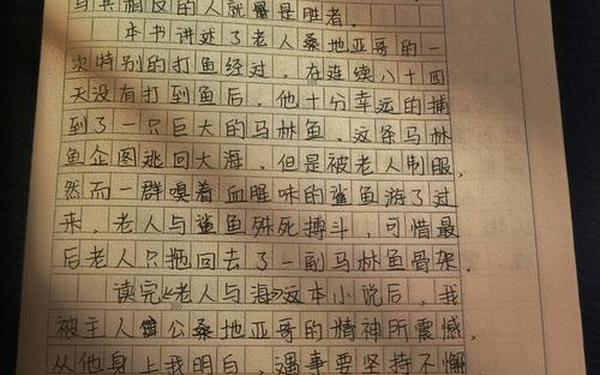 与其相反的人就是胜者.
本书讲述了老人桑地亚哥的一
次特别的打鱼经过，在连续八十四
天没有打到鱼后，他十分幸运的捕
到了一只巨大的马林鱼，这条马林
鱼企图逃回大海，但是被老人制服，
然而一群嗅着血腥味的鲨鱼游了过
来，老人与鲨鱼殊死搏斗，可惜最
后老人只拖回去了一副马林鱼骨架.
读完《老人与海》这本小说后，我
被主人公桑地亚哥的精神所震憾，
从他身上我明白，遇事要坚持不懈